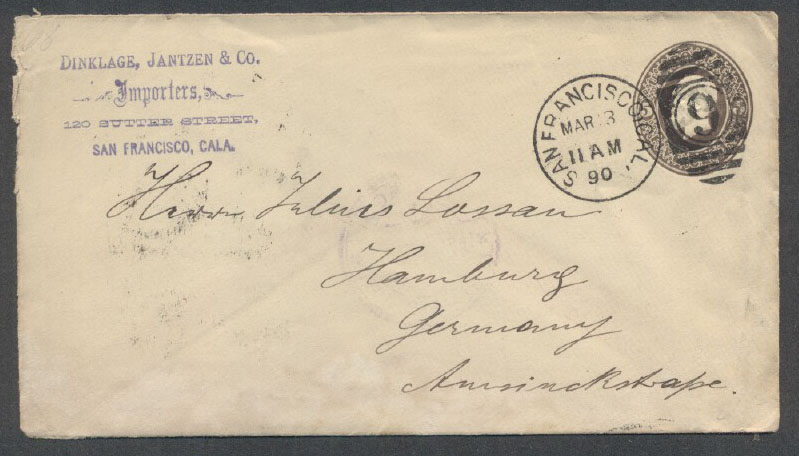 DINKLAGE, JANTZEN & CO.
Importers,
120 SUTTER STREET,
SAN FRANCISCO, CALA.
SAN FRANCISCO, CAL.
MAR 3
11 AM
90
9
Herrn Julius Lossau
Hamburg
Germany
Amsinckstraße.